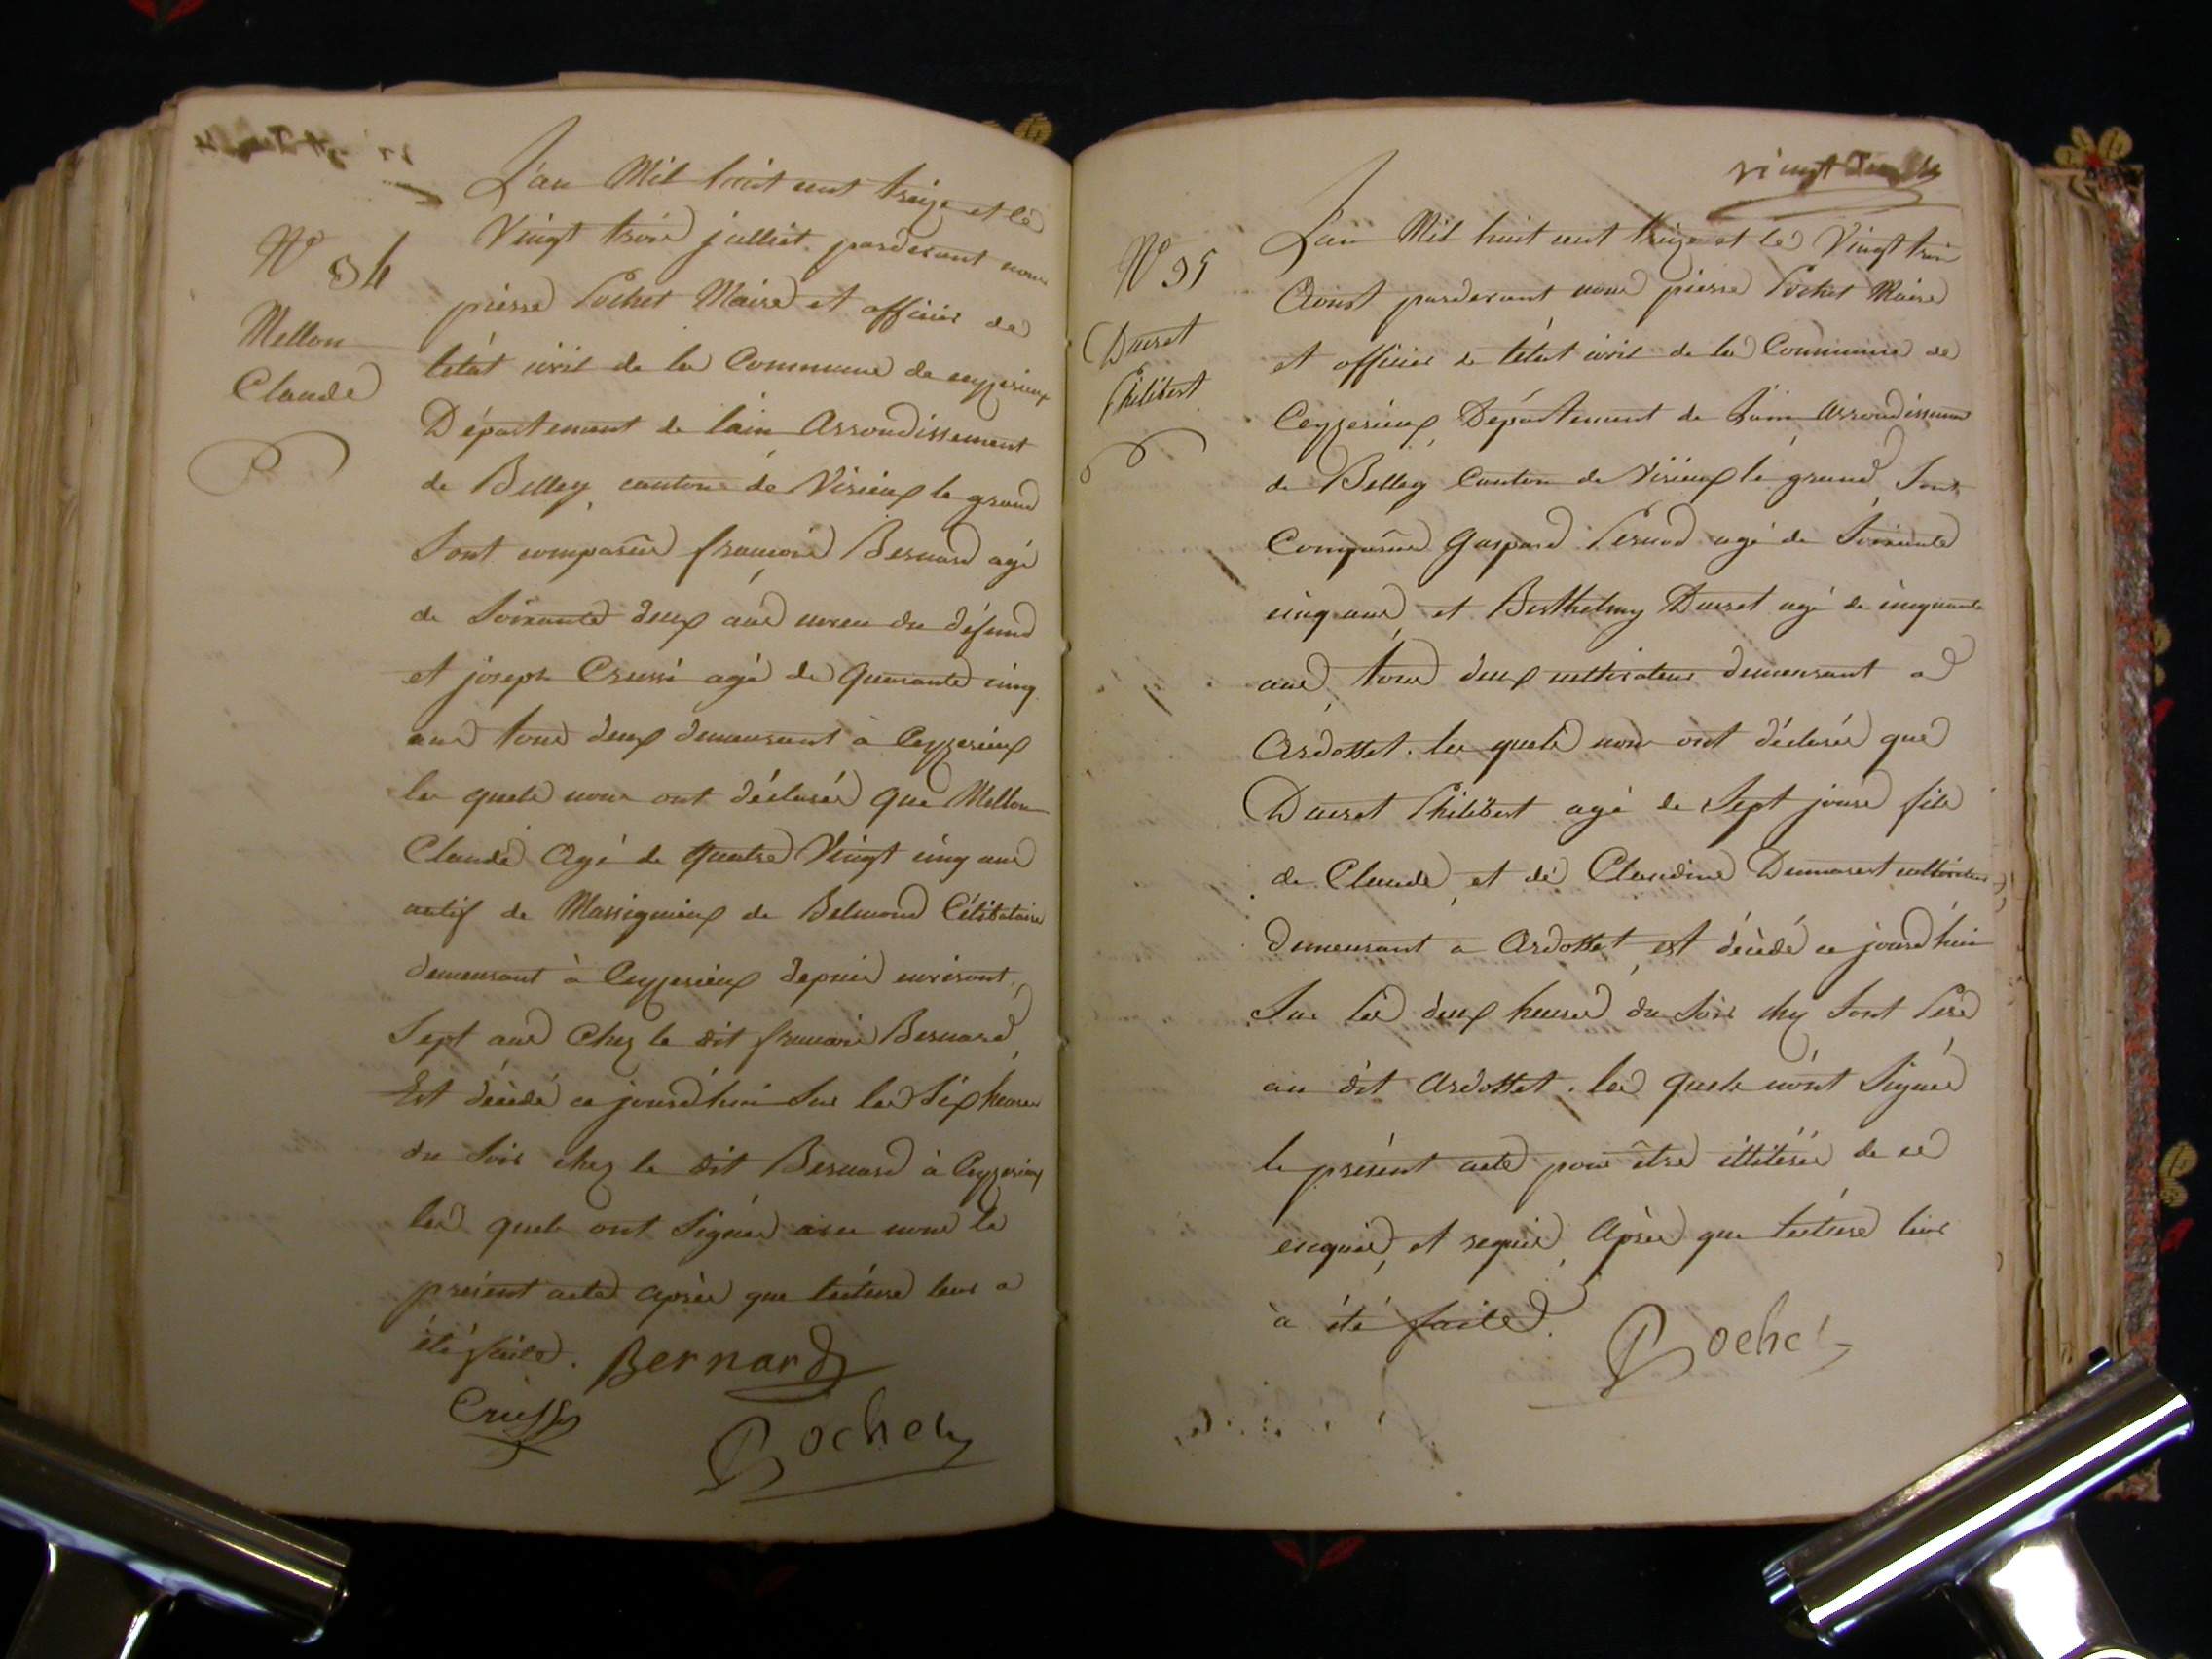 N° 34
Mellon
Claude
L'an Mil huit cent treize et le
Vingt trois julliet. pardevant nous
pierre Pochet Maire et officier de
létat civil de la Commune de ceyzerieux
Département de lain Arrondissement
de Belley, canton de Virieux le grand
Sont comparus françois Bernard agé
de Soixante deux ans neveu du défunt
et joseph Crussi agé de Quarante cinq
ans tous deux demeurant à Ceyzerieux
les quels nous ont déclarés que Mellon
Claude Agé de quatre Vingt cinq ans
natif de Massignieux de Belmond Célibataire
demeurant à Ceyzerieux depuis environt
Sept ans Chez le dit francois Bernard,
Est décédé ce jourd'hui Sur les Six heures
du Soir chez le dit Bernard à Ceyzerieux
les quels ont Signés avec nous le
présent acte après que lécture leur a
été faite. Bernard
Pochet
vingt deux
N° 35
Ducret
Philibert
L'an Mil huit cent treize et le Vingt trois
Aoust pardevant nous pierre Pochet Maire
et officier de létat civil de la Commune de
Ceyzerieux, Département de Lain Arrondissement
de Belley Canton de Virieux le grand, Sont
Comparus Gaspard Pernod agé de Soixante
cinq ans, et Berthelmy Ducret agé de cinquante
ans, tous deux cultivateurs demeurant a
Ardosset. les quels nous ont déclarés que
Ducret Philibert agé de Sept jours fils
de Claude, et de Claudine Dumarest cultivateurs
demeurant a Ardosset, est décédé ce jourd'hui
Sur les deux heures du Soir chez Sont Père
au dit Ardosset. les quels n'ont Signés
le présent acte pour être illitérés de ce
enquis, et requis, Après que lécture leur
à été faite.
Pochet